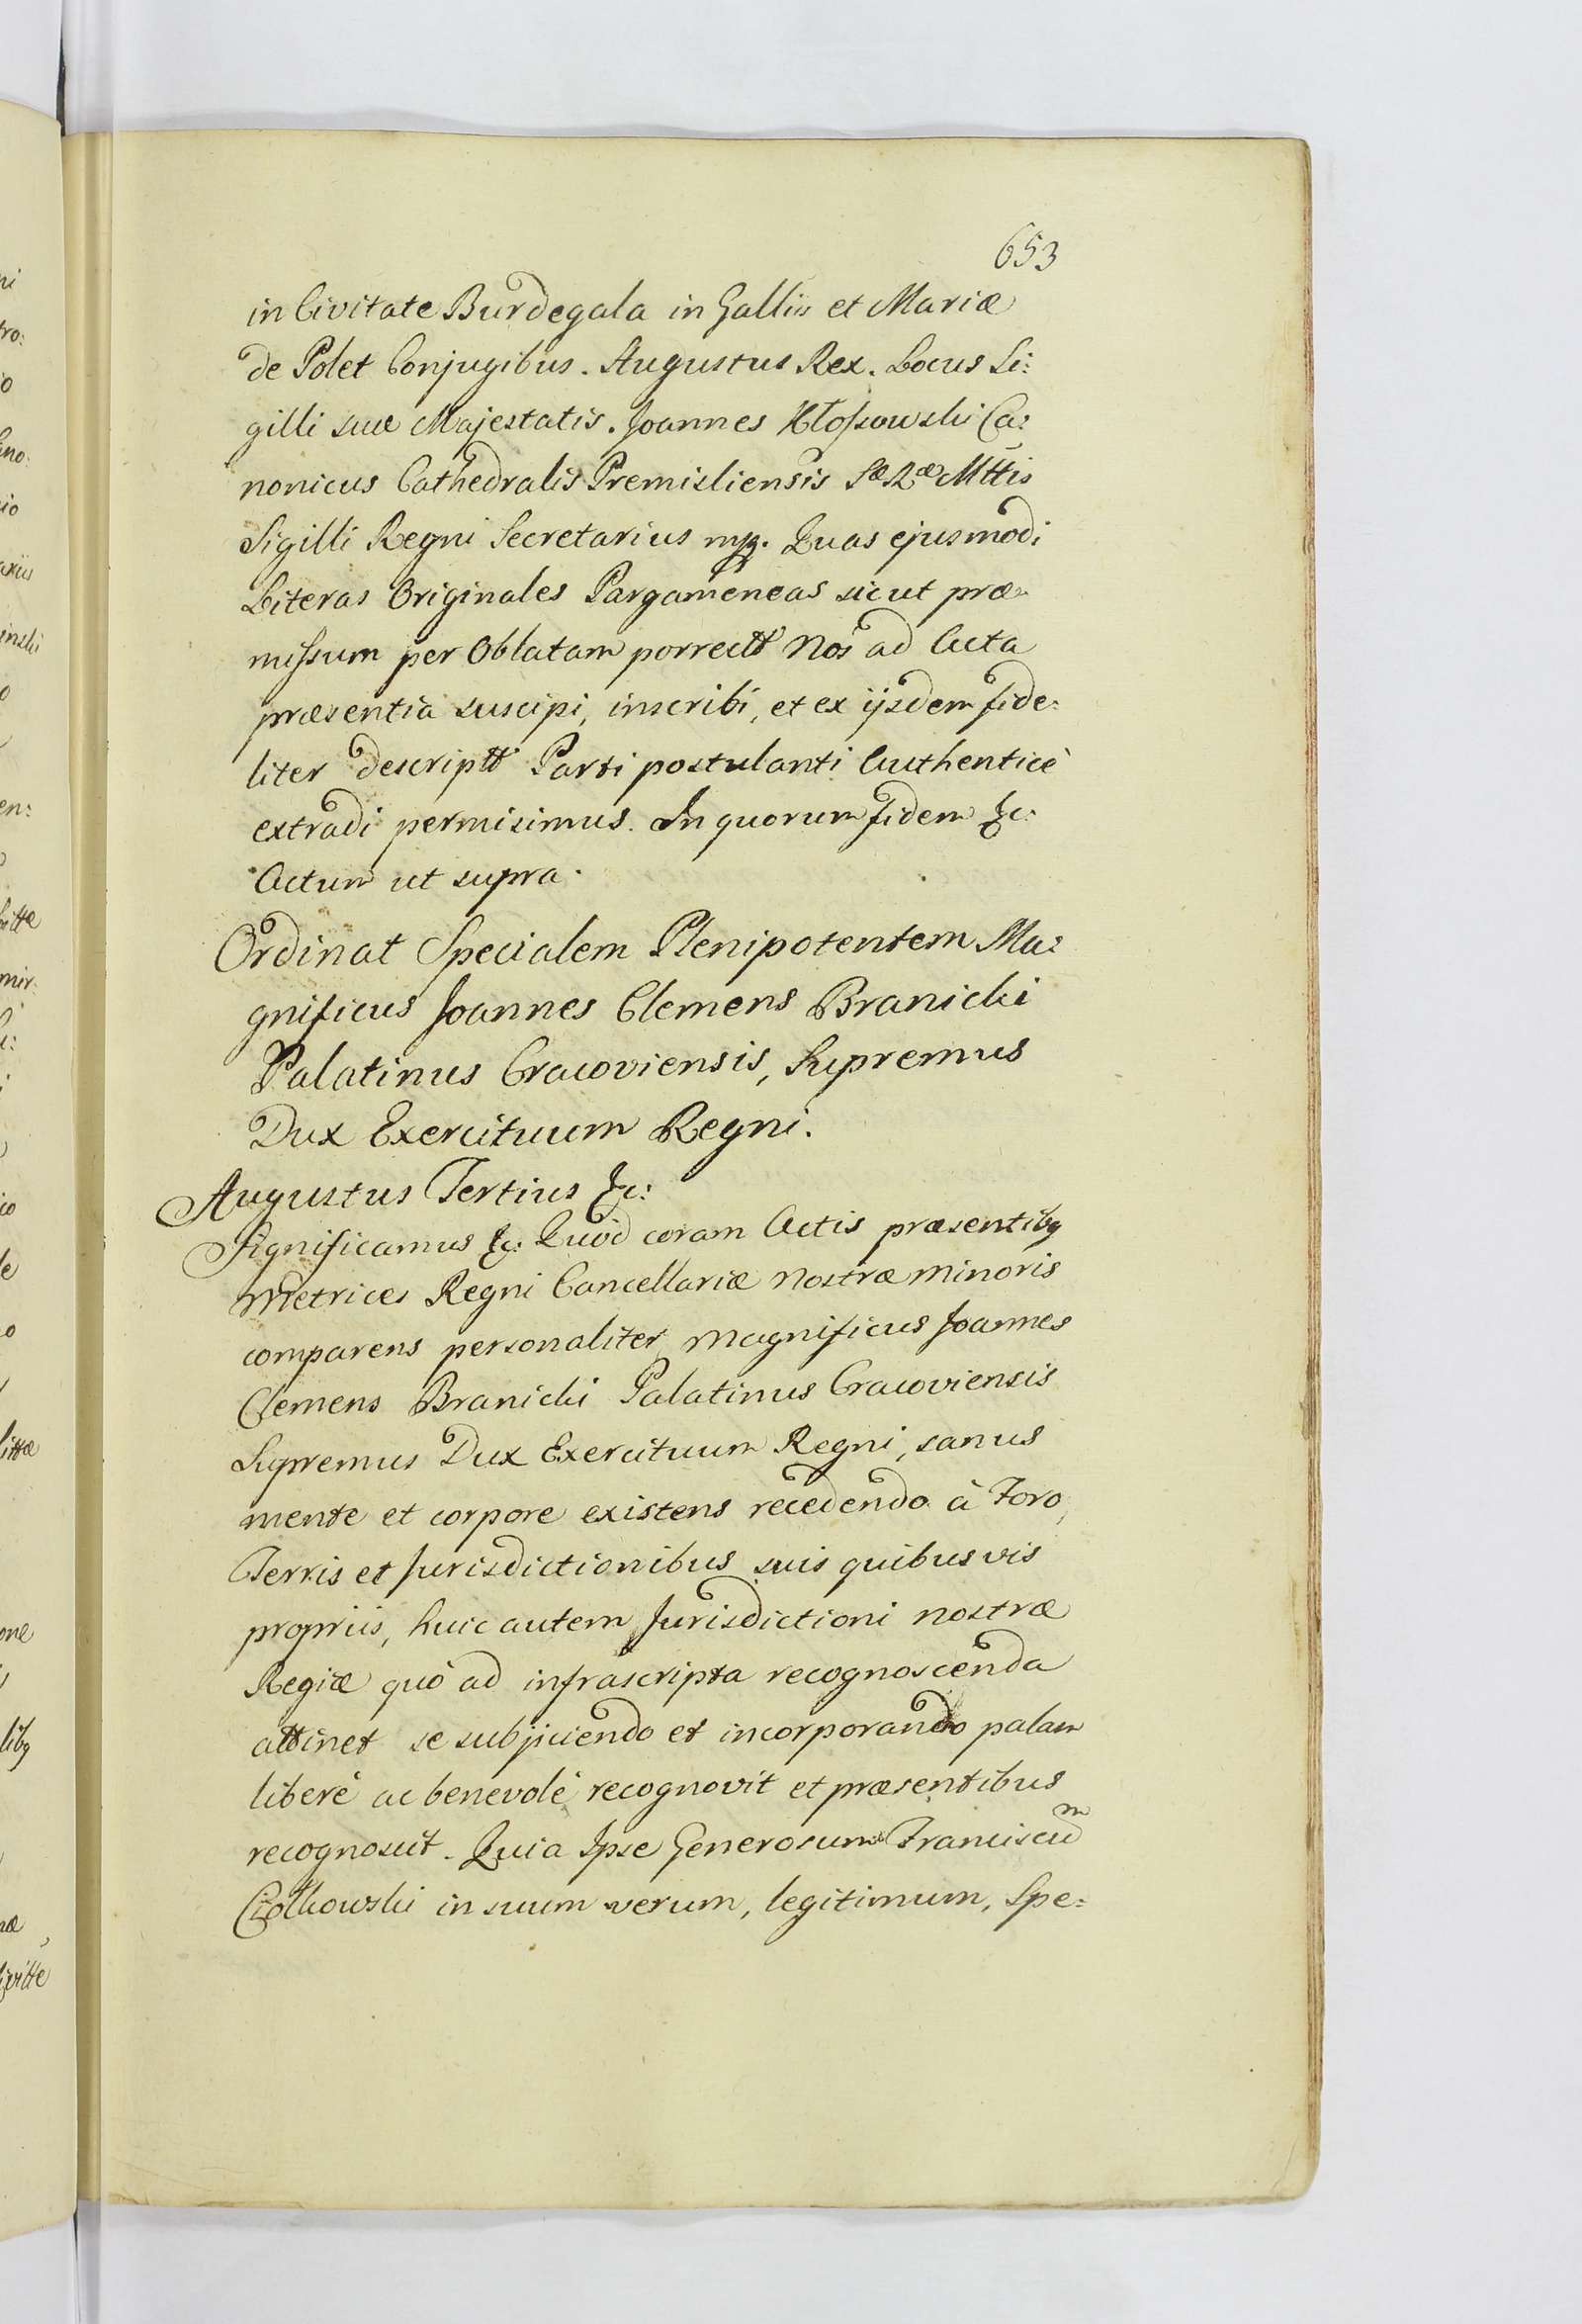 653
in Civitate Burdegala in Gallis et Mariæ
de Polet Conjugibus. Augustus Rex. Locus Si:
gilli suæ Majestatis. Joannes Kłossowski Ca:
nonicus Cathedralis Premisliensis Sæ Ræ Mttis
Sigilli Regni Secretarius mp. Quas ejusmodi
Literas Originales Pargameneas sicut præ:
missum per Oblatam porrectt Nos ad Acta
præsentia suscipi, inscribi, et ex ijsdem fide:
liter descriptt Parti postulanti Authenticè
extradi permisimus. In quorum fidem &c:
Actum ut supra.
Ordinat Specialem Plenipotentem Ma:
gnificus Joannes Clemens Branicki
Palatinus Cracoviensis, Supremus
Dux Exercituum Regni.
Augustus Tertius &c:
Significamus &c: Quòd coram Actis præsentibq
Metrices Regni Cancellariæ Nostræ Minoris
comparens personaliter Magnificus Joannes
Clemens Branicki Palatinus Cracoviensis
Supremus Dux Exercituum Regni, sanus
mente et corpore existens recedendo à Foro,
Terris et Jurisdictionibus suis quibusvis
propriis, huic autem Jurisdictioni nostræ
Regiæ quò ad infrascripta recognoscenda
attinet se subjiciendo et incorporando palam
liberè ac benevolè recognovit et præsentibus
recognoscit. Quia Ipse Generosum Franciscum
Ciołkowski in suum verum, legitimum, Spe: